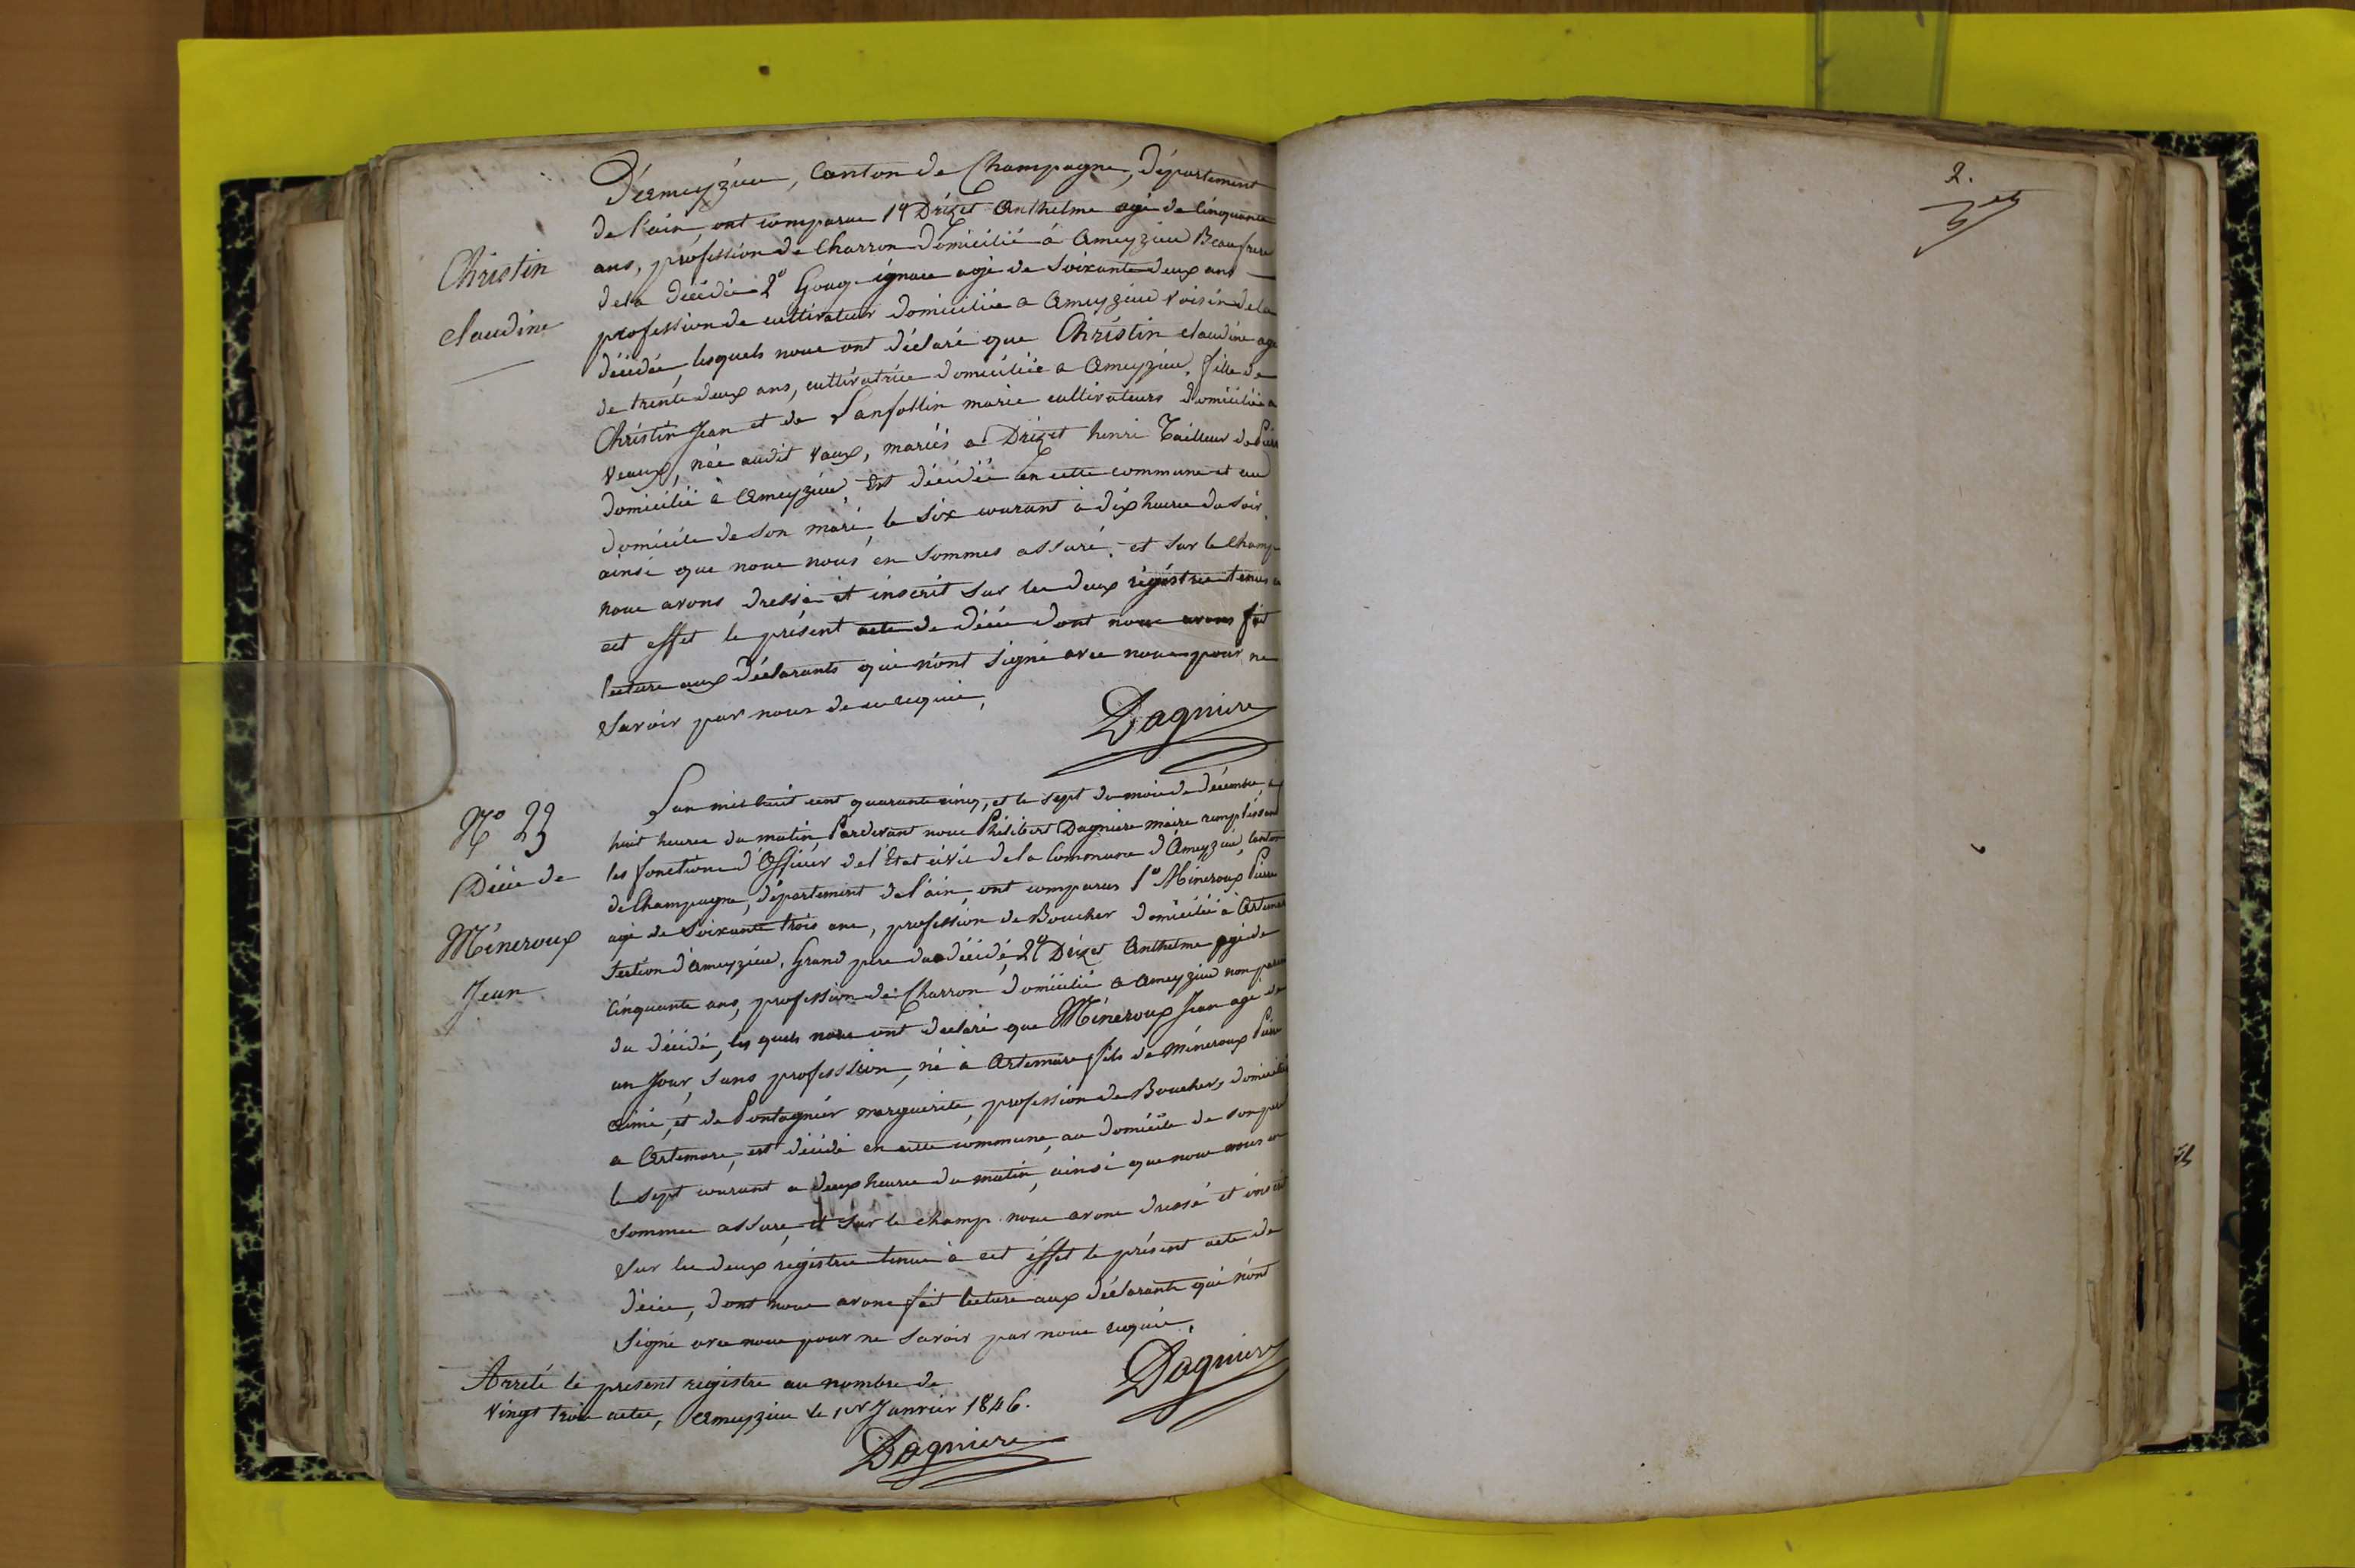 D'ameyzieu, Canton de Champagne, Département
de l'ain, ont comparue 1º Drizet Anthelme agé de Cinquante
ans, profession de Charron Domicilié à Ameyzieu Beaufrere
de la décédée 2º Gouge ignace agé de Soixante deux ans
profession de cultivateur domiciliée a Ameyzieu voisin de la
décédée, lesquels nous ont déclaré que Christin claudine agé
de trente deux ans, cultivatrice domiciliée a Ameyzieu, fille de
Christin Jean et de marie cultivateurs domiciliée a
Veaux, née audit Vaux, mariés a Drizet henri Tailleur de Pierre
domicilié à Ameyzieu, Est décédée en cette commune et au
domicile de son mari, le Six courant à dix heures du Soir,
ainsi que nous nous en Sommes assuré, et sur le Champ
nous avons dressé et inscrit sur les deux régistres tenus a
cet effet le présent acte de décès dont nous avons fait
lecture aux déclarants qui n'ont signé avec nous pour ne
Savoir par nous de ce requis,
Dagniere
Christin
claudine
Nº 23
Décès de
Mineroux
Jean
L'an mil huit cent quarante cinq, et le sept du mois de décembre, à
huit heures du matin, Pardevant nous Philibert Dagniere maire remplissant
les fonctions d'Officier de l'Etat civil de la Commune d'Ameyzieu, Canton
de Champagne, département de l'ain, ont comparus 1º Mineroux Pierre
agé de Soixante trois ans, profession de Boucher domicilié à Artemare
Section d'ameyzieu, Grand pere du décédé, 2º Drizet Anthelme agé de
Cinquante ans, profession de Charron domicilié a ameyzieu non parent
du décédé, les quels nous ont déclaré que Mineroux Jean agé de
un Jour, Sans profession, né à Artemare, fils de Mineroux Pierre
aimé, et de Pontagnier marguerite, profession de Boucher, domicilié
a Artemare, est décédé en cette commune, au domicile de son pere
le sept courant a deux heures du matin, ainsi que nous nous en
Sommes assure, et sur le champ nous avons dressé et inscrit
Sur les deux régistres tenus à cet éffet le présent acte de
décès, dont nous avons fait lecture aux déclarants qui n'ont
Signé avec nous pour ne savoir par nous requis,
Dagniere
Arreté le present registre au nombre de
Vingt trois actes, ameyzieu le 1er Janvier 1846.
Dagniere
2.